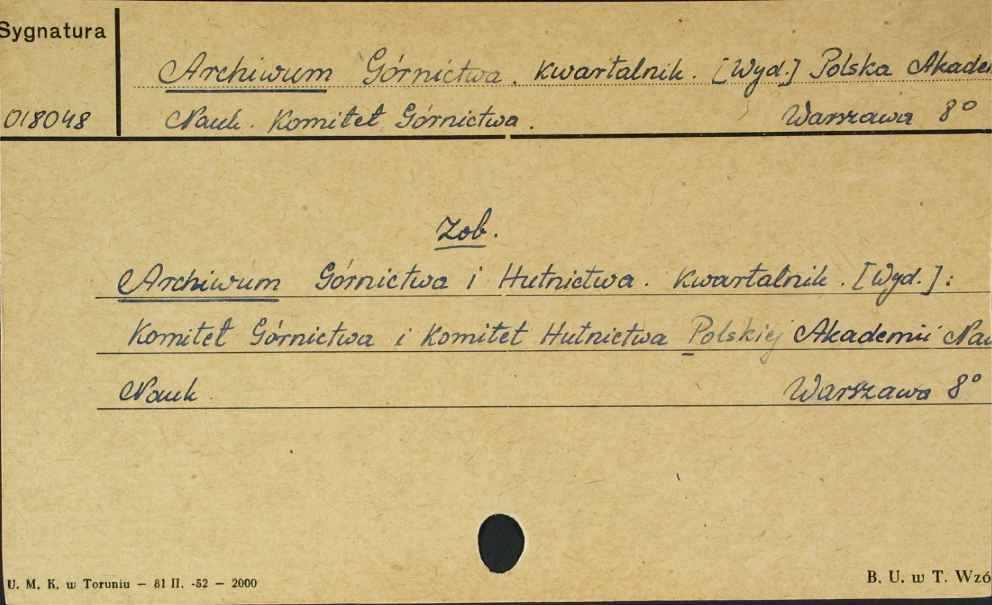 Sygnatura
Archiwum Górnictwa. Kwartalnik. [Wyd.] Polska Akade
018048
Nauk. Komitet Górnictwa. Warszawa 8°
Zob.
Archiwum Górnictwa i Hutnictwa. Kwartalnik. [Wyd.]:
Komitet Górnictwa i Komitet Hutnictwa Polskiej Akademii Nau
Nauk Warszawa 8°
U. M. K. w Toruniu – 81 II. -52 – 2000
B. U. w T. Wzó